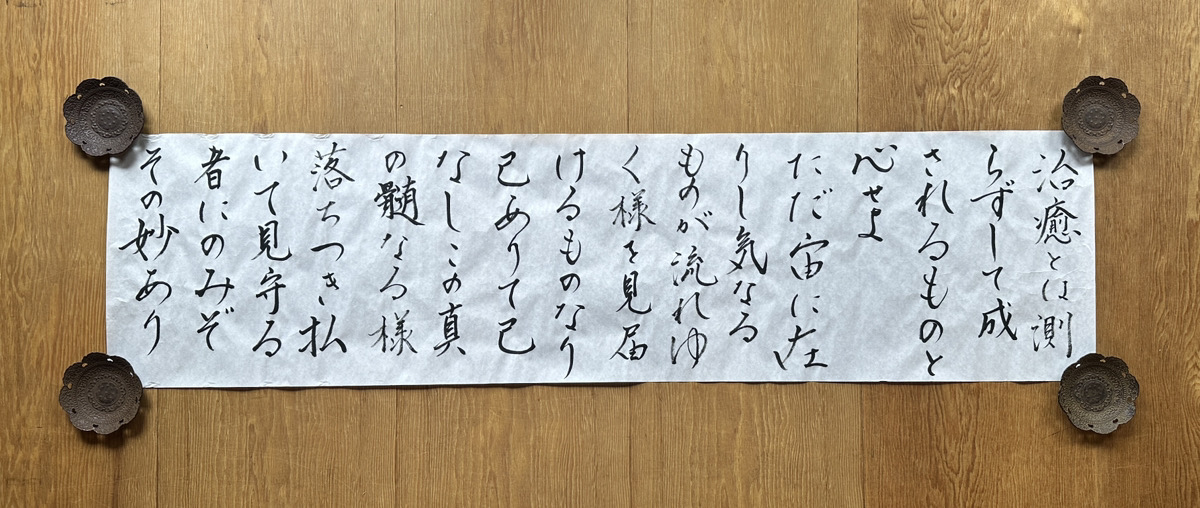 治癒とは測
らずして成
されるものと
心せよ
ただ宙に在
りし気なる
ものが流れゆ
く様を見届
けるものなり
已ありて已
なしこの真
の髄なる様
落ちつき払
いて見守る
者にのみぞ
その妙あり